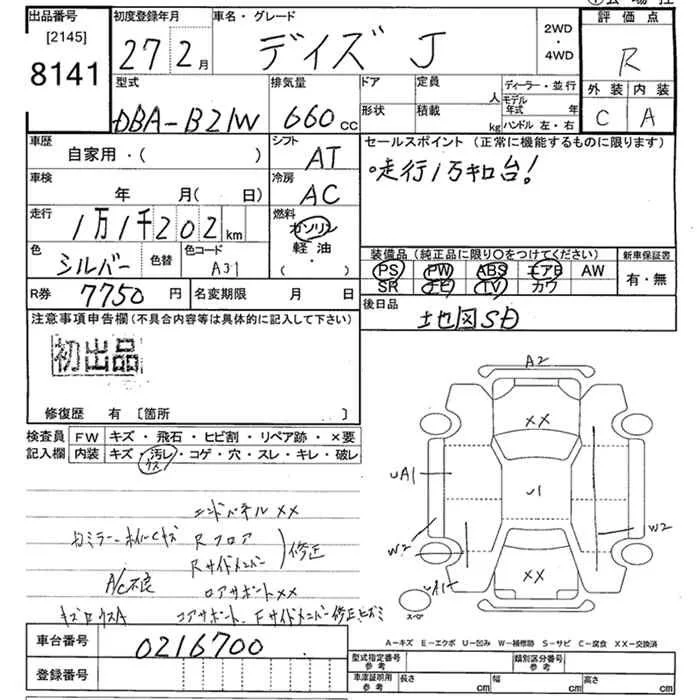 出品番号 初度登録年月 車名・グレード 評価点
[2145]
8141
27 2月
デイズ J
2WD ・ 4WD
R
外装 内装
C A
型式 排気量 ドア 定員 人 ディーラー・並行
モデル年式 年
DBA-B21W 660cc 形状 積載 kg ハンドル 左・右
車歴 自家用・( ) シフト AT
セールスポイント (正常に機能するものに限ります)
走行1万キロ台!
車検 年 月( 日) 冷房 AC
走行 1万1千202km 燃料 ガソリン
軽油
( ・ )
色 シルバー 色替 色コード A31
装備品 (純正品に限り○をつけてください) 新車保証書
PS PW ABS エアB AW 有・無
SR ナビ TV カワ
R券 7750円 名変期限 月 日
後日品 地図SD
注意事項申告欄(不具合内容等は具体的に記入して下さい)
初出品
修復歴 有 [箇所 ]
検査員 FW キズ ・ 飛石 ・ ヒビ割 ・ リペア跡 ・ ×要
記入欄 内装 キズ ・ 汚レ ・ コゲ ・ 穴 ・ スレ ・ キレ ・ 破レ
A2
XX
UA1
U1
W2
W2
XX
UA1
スペア
XX
Rフロア
Rサイドメンバー
修正
A/C不良
ロアサポートXX
コアサポート、Fサイドメンバー修正
A-キズ E-エクボ U-凹み W-補修跡 S-サビ C-腐食 XX-交換済
車台番号 0216700
登録番号
型式指定番号 参考 類別区分番号 参考
車庫証明 参考 長さ cm 幅 cm 高さ cm